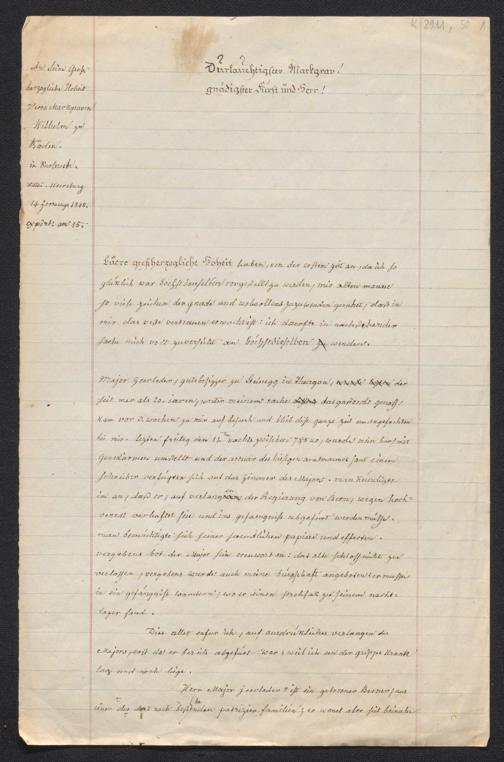 K 2911, 50 1
Dürlauchtigster Markgrav!
gnädigster Fürst und Herr!
An Seine Groß-
herzogliche Hoheit
Herrn Markgraven
Wilhelm zu
Baden.
in Karlsruhe.
Meersburg
14
Euere großherzogliche Hoheit haben, von der ersten zeit an, da ich so
glüklich war Höchstdenselben vorgestellt zu werden, mir alten manne
so viele zeichen der gnade und wohlwollens zuzuwenden geruhet, dass in
mir das veste vertrauen erwachsst: ich doerfte in nachstehender
sache mich voll zuversicht an Höchstdieselben zu wenden.
Major Goerleder, gutsbesizer zu Steinegg im Thurgau, der
seit mer als 20. jaren, unter meinem dache das gastrecht genoss,
kam vor 3. wochen zu mir auf besuch und blib dise ganze zeit unangefochten
bei mir. lezten freitag den 12 nachts zwischen 7 & 8 uo, wurde mein haus mit
Gensdarmen umstellt und der actuar des hiesigen amtmannes samt einem
schreiber verfügten sich auf das zimmer des Majors. man kündigte
im an, dass er, auf verlangen der Regierung von Bern, wegen hoch-
verrat verhaftet sei und ins gefaengniss abgefürt werden müsse.
man bemächtigte sich seiner saemtlichen papiere und effecten.
vergebens bot der Major sein erenwort an: das alte schloss nicht zu
verlassen, vergebens wurde auch meine bürgschaft angeboten; er musste
in ein gefängniss wandern, wo er einen strohsak zu seinem nacht-
lager fand.
Dis alles erfur ich, auf ausdrükliches verlangen des
Majors, erst da er bereits abgefürt war, weil ich an der grippe krank
lag und noch lige.
Herr Major goerleder ist ein geborener Berner, aus
einer der noch bestehenden patrizier familien; er wonet aber seit beinahe